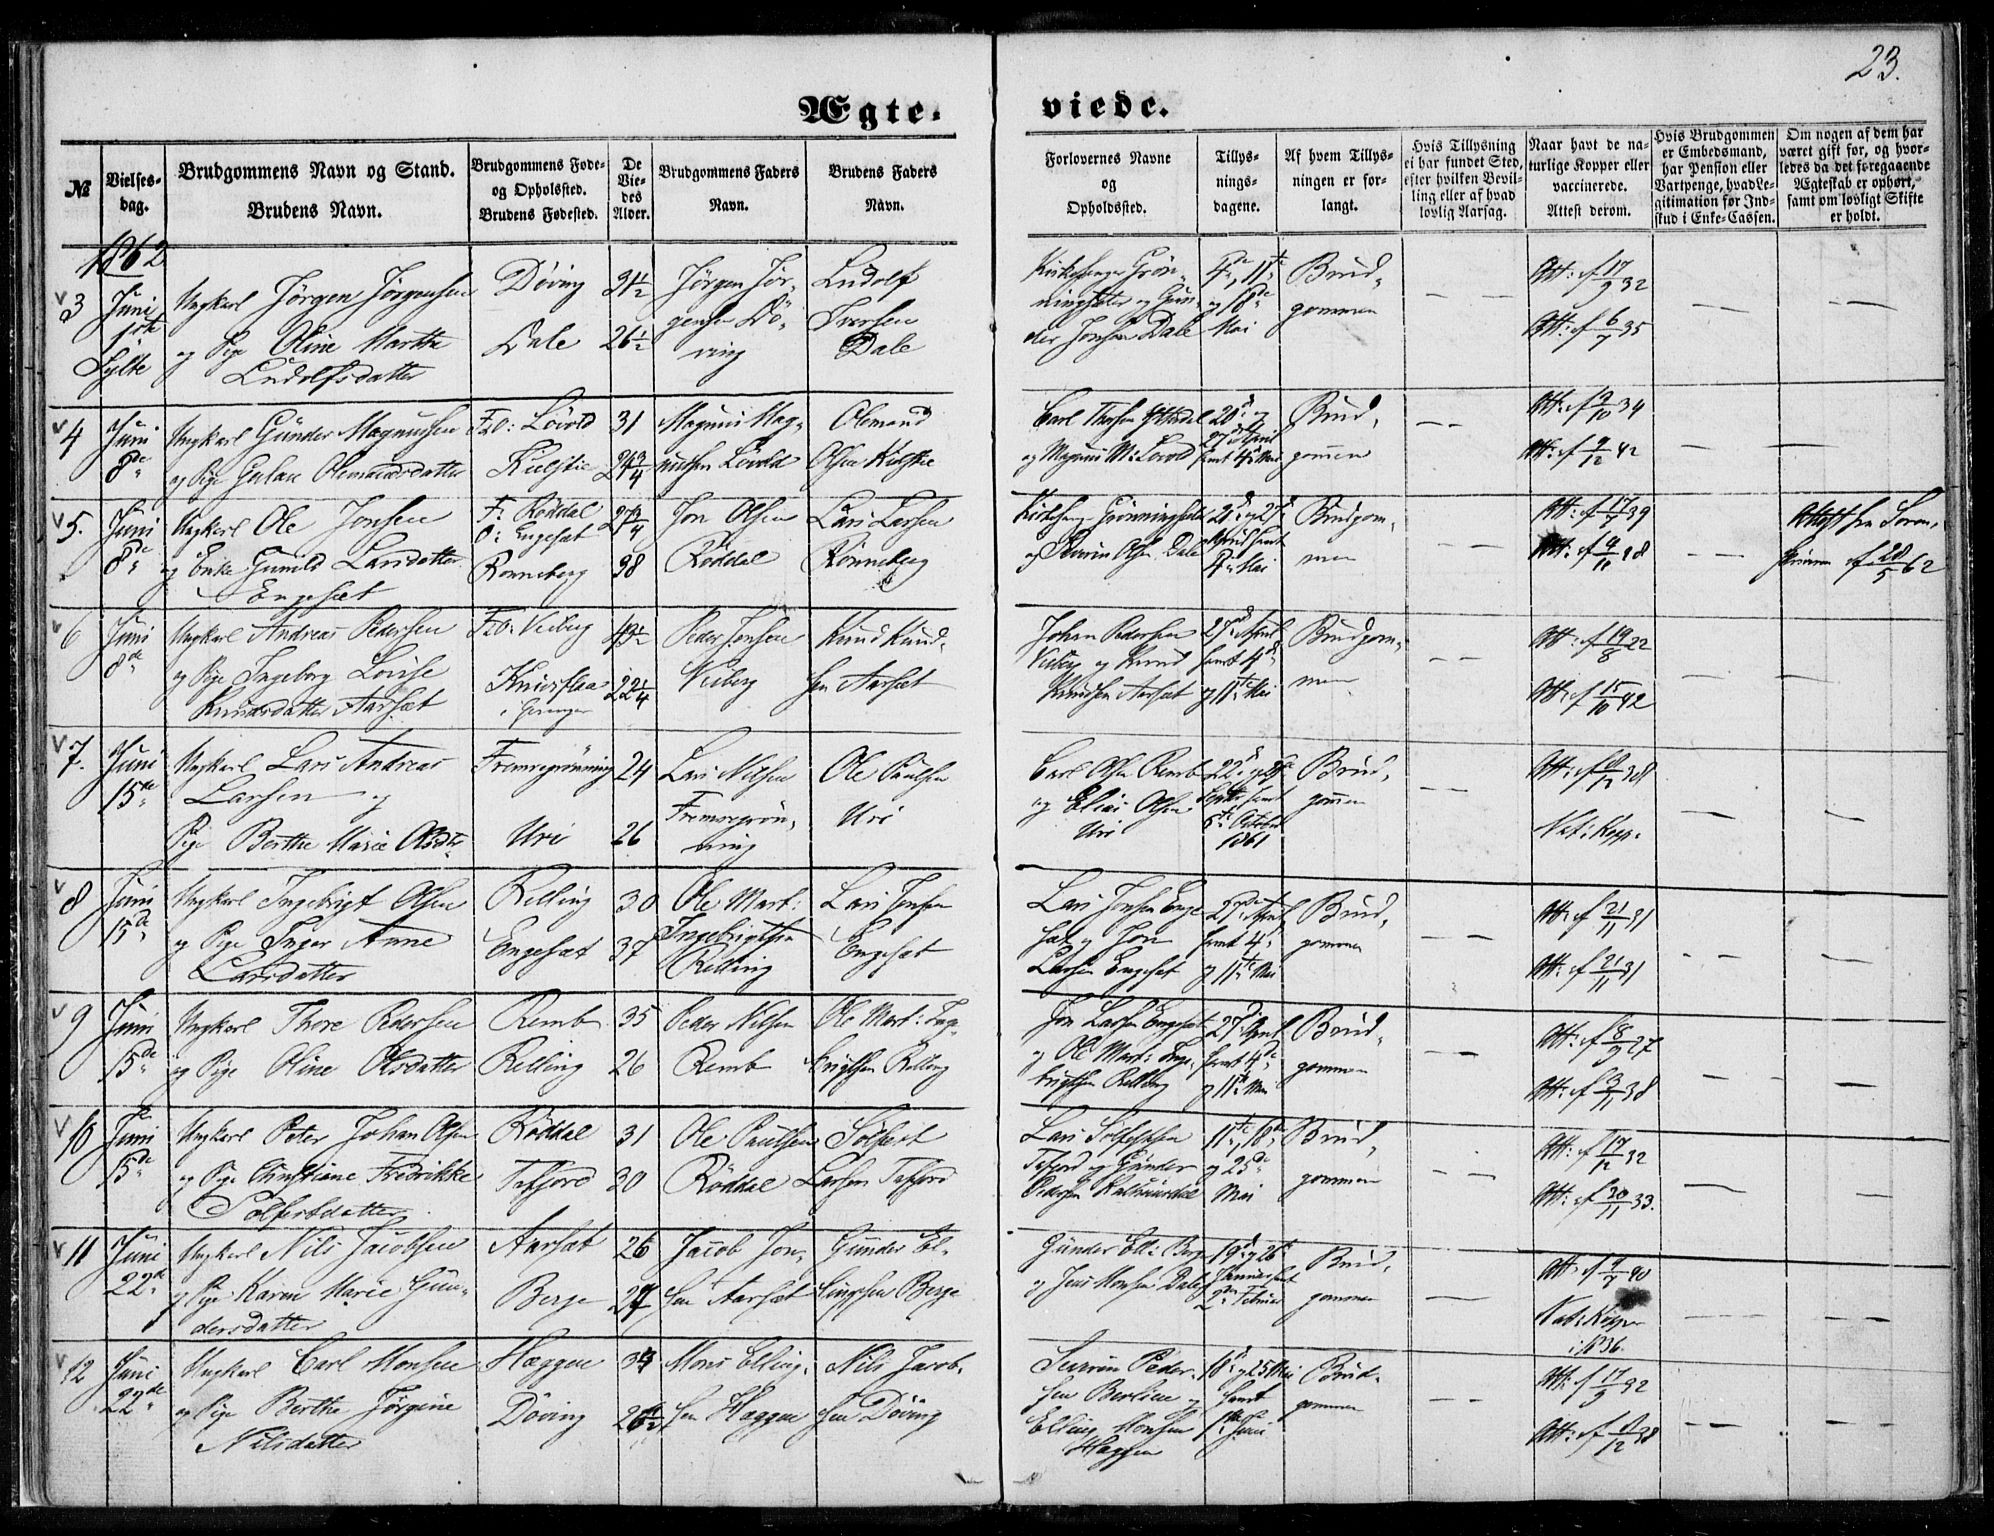 23.
Ægte-
viede.
№
Vielses-
dag.
Brudgommens Navn og Stand.
Brudens Navn.
Brudgommens Føde-
og Opholsted.
Brudens Fødested.
De
Vie-
des
Alder.
Brudgommens Faders
Navn.
Brudens Faders
Navn.
Forlovernes Navne
og
Opholdssted.
Tillys-
nings-
dagene.
Af hvem Tillys-
ningen er for-
langt.
Hvis Tillysning
ei har fundet Sted,
efter hvilken Bevil-
ling eller af hvad
lovlig Aarsag.
Naar havt de na-
turlige Kopper eller
vaccinerede.
Attest derom.
Hvis Brudgommen
er Embedsmand,
har Pension eller
Vartpenge, hvad Le-
gitimation for Ind-
skud i Enke-Cassen.
Om nogen af dem har
været gift før, og hvor-
ledes da det foregaaende
Ægteskab er ophørt,
samt om lovligt Skifte
er holdt.
1862
3 Juni
Sylte
Ungkarl Jörgen Jörgensen
og Pige Oline Marthe
Ludolfsdatter
Döving
Dale
31½
26½
Jörgen Jör-
gensen Dö-
ving
Ludolf
Iversen
Dale
Kirkesanger Grön-
ningsæter og Gun-
der Jonsen Dale
4de, 11te
og 18de
Mai
Brud-
gommen
Att: af 17/9 32
Att: af 6/7 35
4 Juni
8de
Ungkarl Gunder Magnussen
og Pige Gulau Olemandsdatter
F&O: Lövold
31
Magnus Mag-
nussen Lövold
Olemand
Olsen
og Magnus M: Lovold
27de April
samt 4de Mai
Brud-
gommen
5. Juni
8de
Ungkarl Ole Jonsen
og Enke Gunild Larsdatter
Engesæt
F: Röddal
O: Engesæt
Ronneberg
27¾
38
Jon Olsen
Röddal
Lars Larsen
Rönneberg
Kirkesang: Grönningsæter
og Severin Olsen Dale
20de og 27de
April samt
4de Mai
Brudgom-
men
Att: af 17/7 39
Attest fra Soren-
skriveren af 28/5 62
6 Juni
8de
Ungkarl Andreas Pedersen
og Pige Ingeborg Lovise
Knudsdatter Aarsæt
F&O: Veiberg
Knivsflaa
i Geiranger
43½
22¼
Peder Jensen
Veiberg
Knud Knud-
sen Aarsæt
Johan Pedersen
Veiberg og Knud
Knudsen Aarsæt
27de April
samt 4de
og 11te Mai
Brudgom-
men
Att: af 19/8 22
Att: af 15/10 42
7. Juni
15de
Ungkarl Lars Andreas
Larsen og
Pige Berthe Marie Olsdtr
Fremregrönning
Uri
24
26
Lars Nilsen
Fremregrön-
ning
Ole Paulsen
Uri
Carl Olsen Remb
og Elias Olsen
Uri
22de og 29de
Septbr samt
6te October
1861
Brud-
gommen
Nat: Kopp:
8 Juni
15de
Ungkarl Ingebrigt Olsen
og Pige Inger Anne
Larsdatter
Relling
Engesæt
30
37
Ole Mart:
Ingebrigtsen
Relling
Lars Jonsen
Engesæt
Lars Jonsen Enge-
sæt og Jon
Larsen Engesæt
27de April
samt 4de
og 11te Mai
Brud-
gommen
Att: af 21/11 31
Att: af 21/11 31
9 Juni
15de
Ungkarl Thore Pedersen
og Pige Oline Olsdatter
Remb
Relling
35
26
Peder Nilsen
Remb
Ole Mart: Inge-
brigtsen Relling
Jon Larsen Engesæt
og Ole Mart: Inge-
brigtsen Relling
27de April
samt 4de
og 11te Mai
Brud-
gommen
Att: af 8/9 27
Att: af 3/11 38
10 Juni
15de
Ungkarl Peter Johan Olsen
og Pige Christiane Fredrikke
Solfestdatter
Röddal
Tafjord
31
30
Ole Paulsen
Röddal
Solfest
Larsen Tafjord
Lars Solfestsen
Tafjord og Gunder
Pedersen
11te, 18de
og 25de
Mai
Brud-
gommen
Att: af 17/12 32
Att: af 30/11 33.
11 Juni
22de
Ungkarl Nils Jacobsen
og Pige Karen Marie Gun-
dersdatter
Aarsæt
Berge
26
Jacob Jon-
sen Aarsæt
Gunder El-
lingsen Berge
Gunder Ell: Berge
og Jens Monsen Dale
19de og 26de
Januar samt
2den Februar
Brud-
gommen
Nat: Kopper
i 1836.
12 Juni
22de
Ungkarl Carl Monsen
og Pige Berthe Jörgine
Nilsdatter
Hæggen
Döving
Mons Elling-
sen Hæggen
Nils Jacob-
sen Döving
Severin Peder-
sen Berlien og
Elling Monsen
Hæggen
18de og 25 Mai
samt
1ste Juni
Brud-
gommen